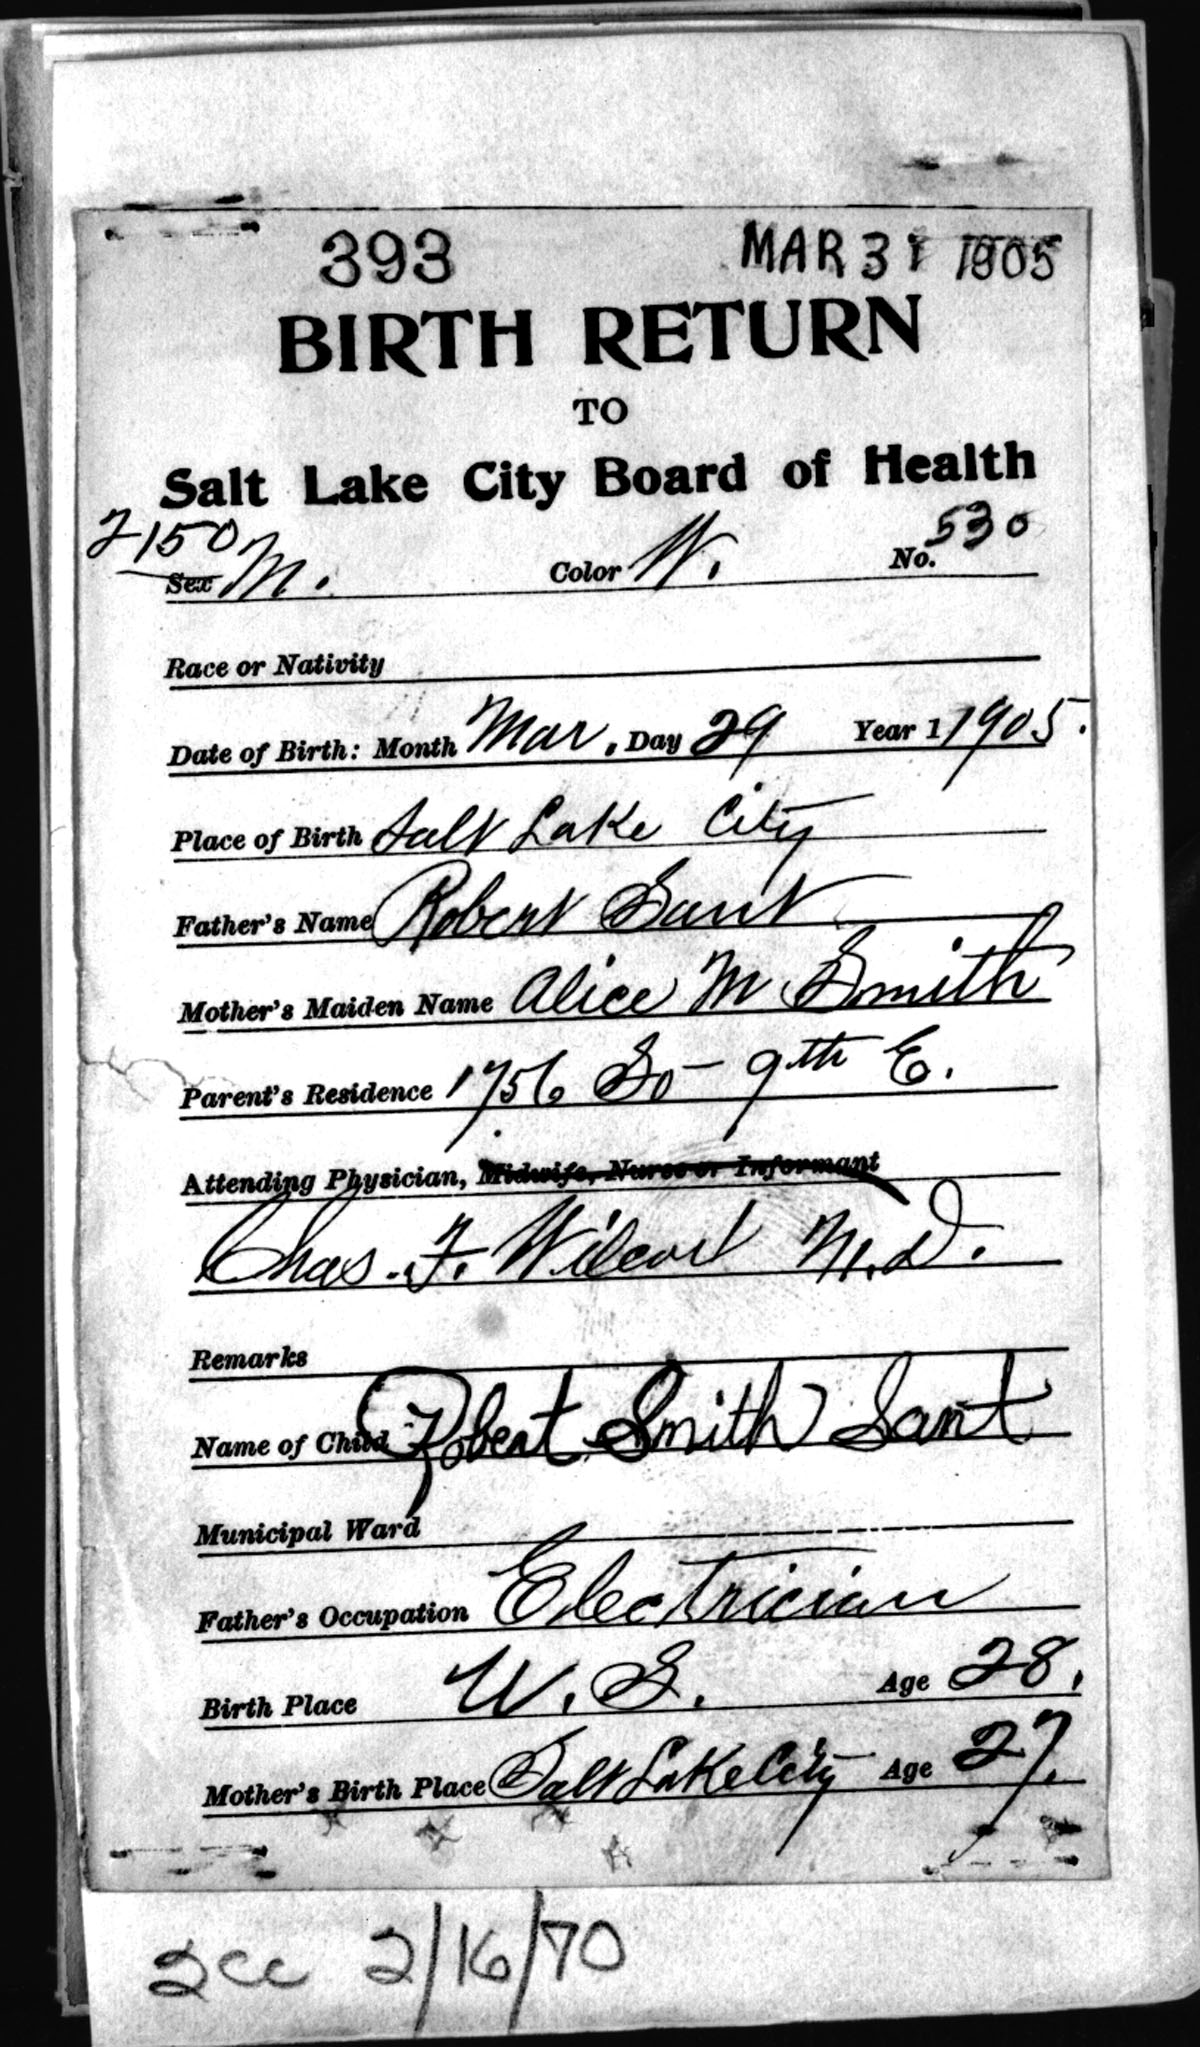 393 MAR 31 1905
BIRTH RETURN
TO
Salt Lake City Board of Health
2150
Sex M. Color W. No. 530
Race or Nativity
Date of Birth: Month Mar. Day 29 Year 1 1905.
Place of Birth Salt Lake City
Father's Name Robert Sant
Mother's Maiden Name Alice M Smith
Parent's Residence 1756 So - 9th E.
Attending Physician, Midwife, Nurse or Informant
Chas. F. Wilcox M.D.
Remarks
Name of Child Robert Smith Sant
Municipal Ward
Father's Occupation Electrician
Birth Place U. S. Age 28.
Mother's Birth Place Salt Lake City Age 27.
2cc 2/16/70